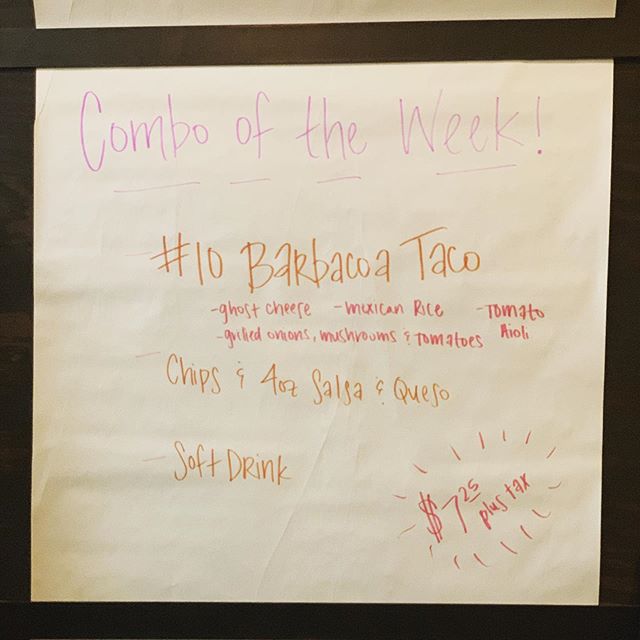 Combo of the Week!
#10 Barbacoa Taco
-ghost cheese -mexican Rice -Tomato Aioli
-grilled onions, mushrooms & tomatoes
Chips & 4oz Salsa & Queso
Soft Drink
$7.25 plus tax